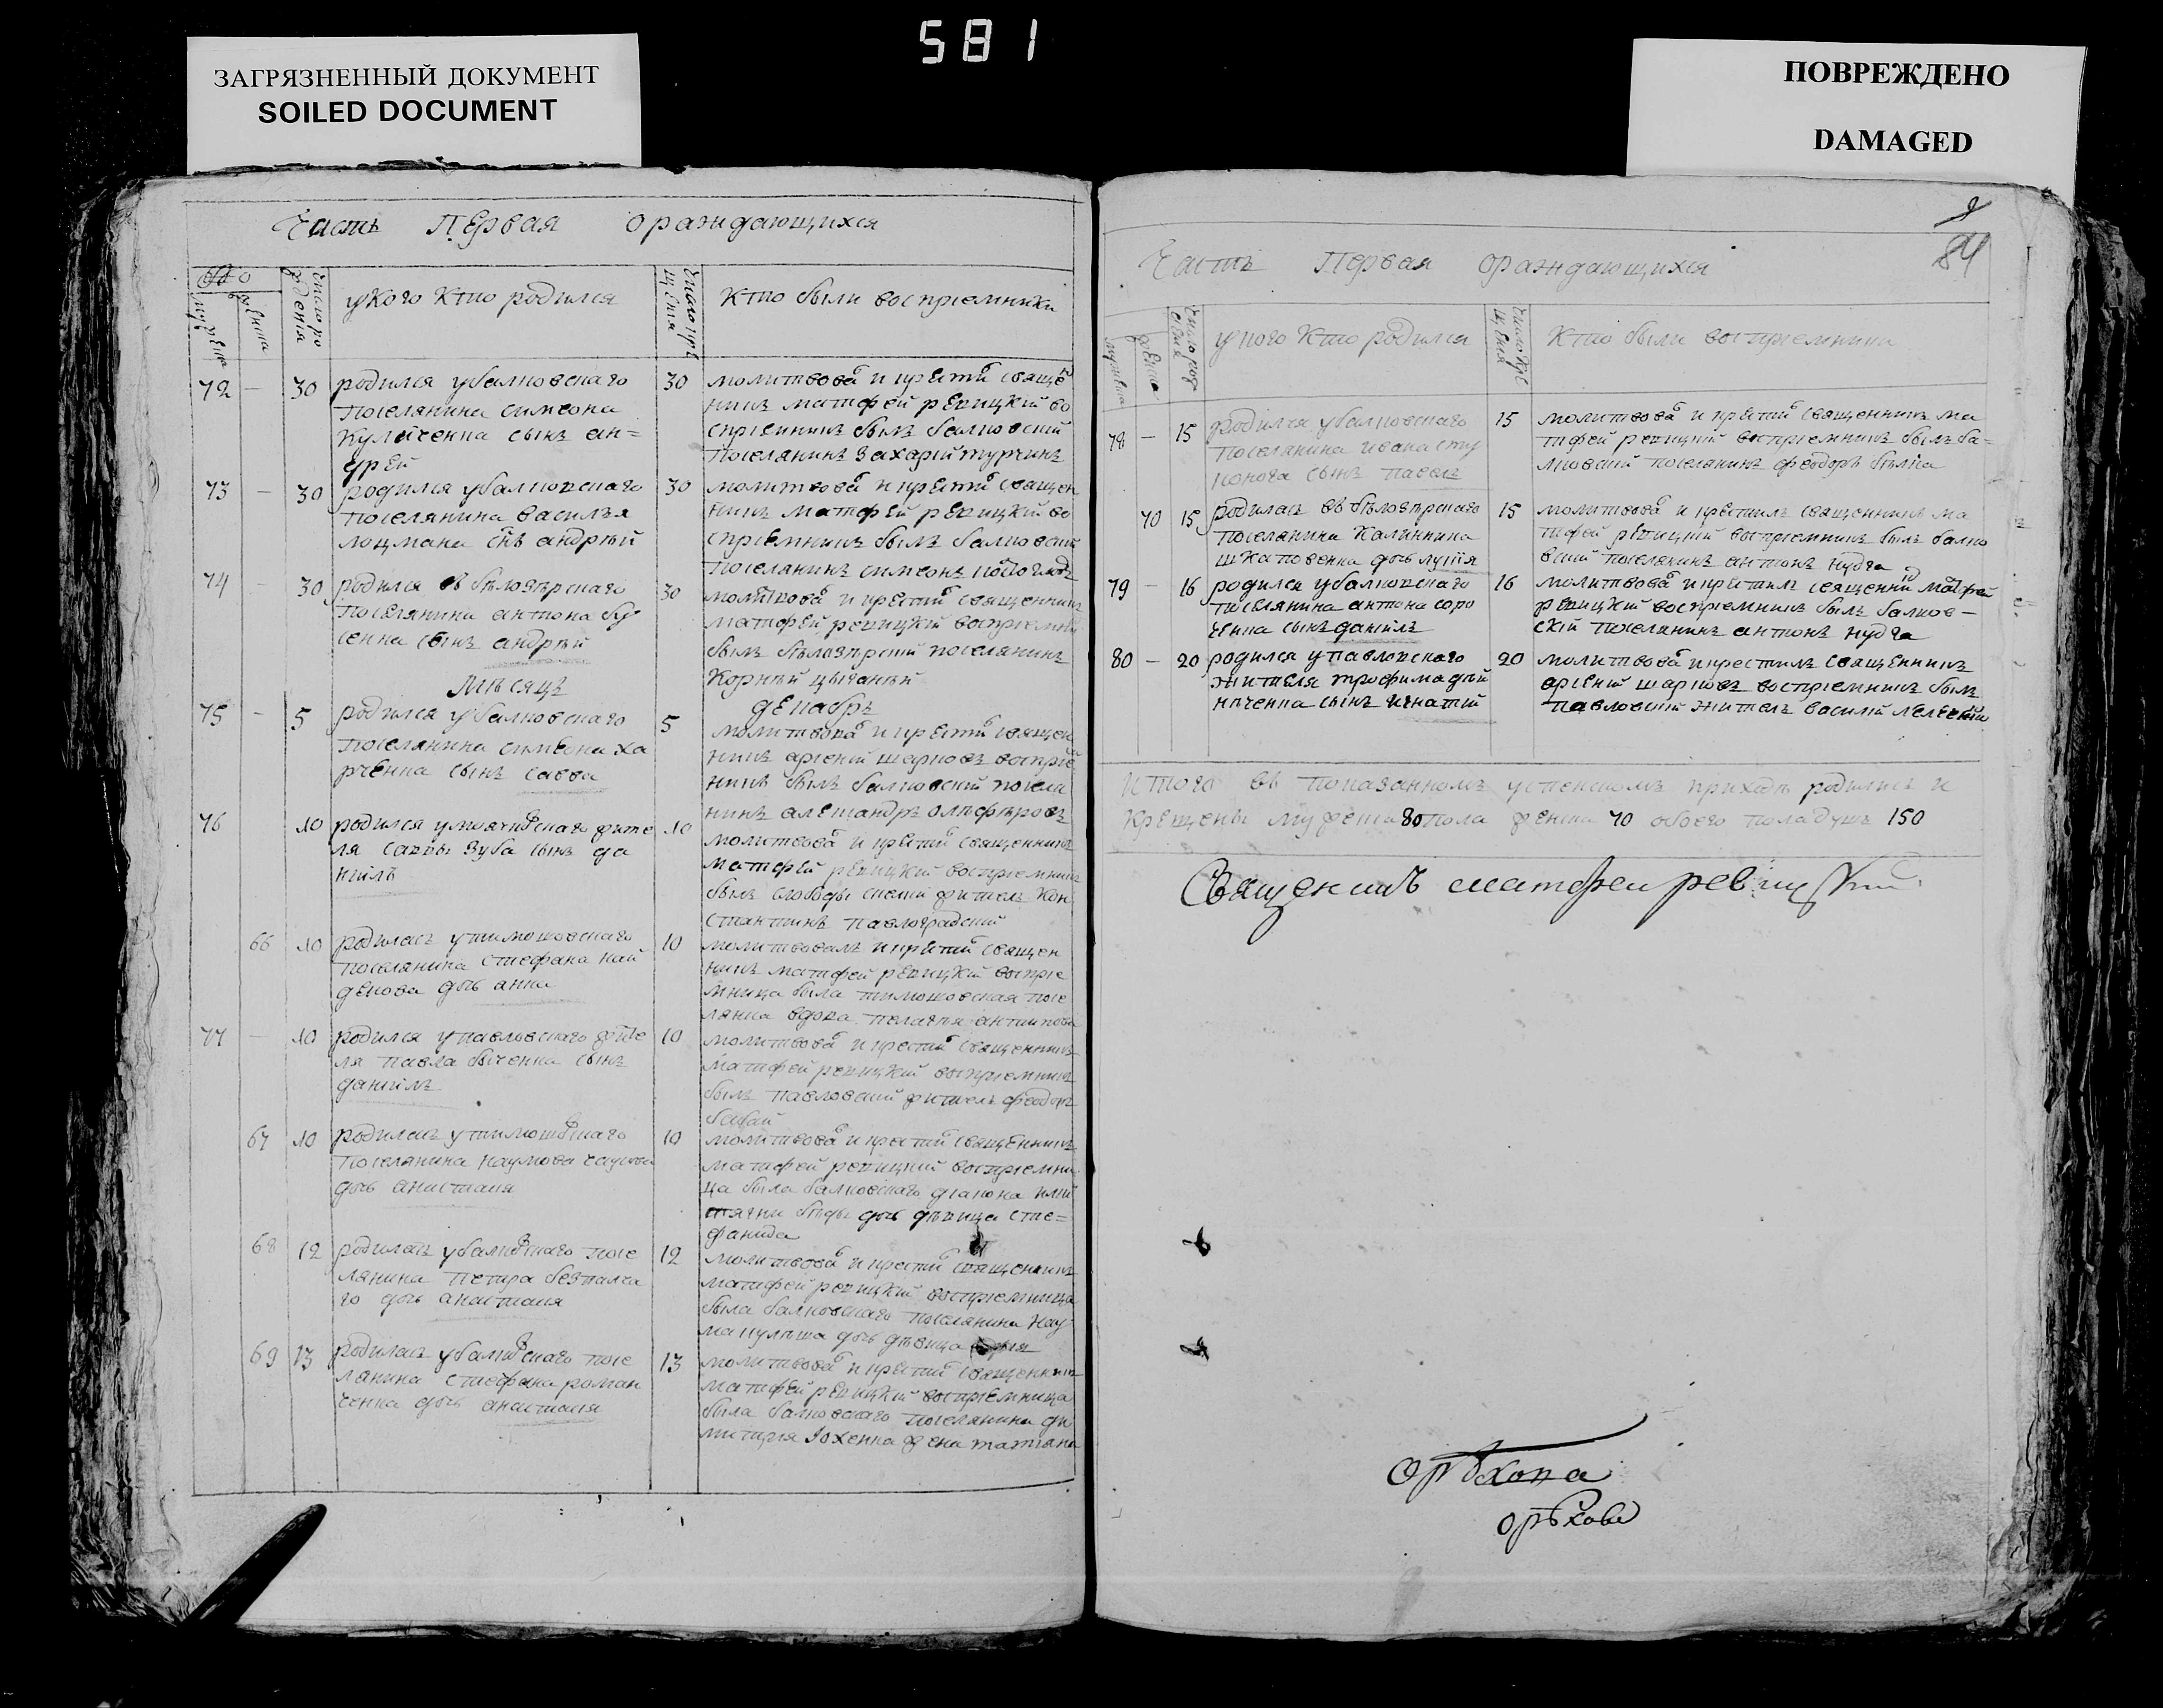 581
ЗАГРЯЗНЕННЫЙ ДОКУМЕНТ
SOILED DOCUMENT
ПОВРЕЖДЕНО
DAMAGED
Часть Первая ораждающихся
укого Кто родился
Кто были восприемники
72 — 30 родился убалковскаго
поселянина симеона
Куличенка сынъ ан=
дрей
30 молитвова и крести свяще
никъ матфей ревицкий во
спріемникъ былъ балковский
поселянинъ Захарій турчинъ
73 — 30 родился убалковскаго
поселянина василья
лоцмана снъ андрѣй
30 молитвова и крести священ
никъ матфей ревицкий во
спріемникъ былъ балковский
поселянинъ симеонъ
74 — 30 родился въ бѣлозѣрскаго
поселянина антона бу
сенка сынъ андрѣй
30 молитвова и крести священникъ
матфей ревицкий восприемни
былъ бѣлозѣрский поселянинъ
Корнѣй цыганѣй
Мѣсяцъ
декабрь
75 — 5 родился убалковскаго
поселянина симеона ха
рченка сынъ савва
5 молитвова и крести священ
никъ арсений шарковъ воспріе
никъ былъ балковский поселя
нинъ алешандръ олѣфѣровъ
76 10 родился умоячковскаго жите
ля саввы Зуба сынъ да
ниилъ
10 молитвова и крести священникъ
матфей ревицкий восприемникъ
былъ слободы житель Кон
стантинъ павлоградский
66 10 родилась утимошовскаго
поселянина стефана най
денова дочь анна
10 молитвовалъ и крести священ
никъ матфей ревицкий восприе
мница была тимошовская посе
лянка вдова пелагия антипова
77 — 10 родился упавловскаго жите
ля павла быченка сынъ
даниилъ
10 молитвова и крести священникъ
матфей ревицкий восприемникъ
былъ павловский житель феодоръ
бабай
67 10 родилась утимошовскаго
поселянина наумова
дочь анастасия
10 молитвова и крести священникъ
матфей ревицкий восприемни
ца была балковскаго диакона
дочь дѣвица сте=
фанида
68 12 родилась убалковскаго посе
лянина петра безпалча
го дочь анастасия
12 молитвова и крести священникъ
матфей ревицкий восприемница
была балковскаго поселянина нау
ма кулиша дочь дѣвица
69 13 родилась убалковскаго посе
лянина стефана роман
ченка дочь анастасия
13 молитвова и крести священникъ
матфей ревицкий восприемница
была балковскаго поселянина ди
митрия Зохенка жена татиана
84
Часть Первая ораждающихся
укого Кто родился
Кто были восприемники
78 — 15 родился убалковскаго
поселянина ивана сту
конога сынъ павелъ
15 молитвова и крести священникъ ма
тфей ревицкий восприемникъ былъ ба=
лковский поселянинъ феодоръ бѣлка
70 15 родилась въ бѣлозѣрскаго
поселянина Калинника
шкаповенка дочь лукия
15 молитвова и крестилъ священникъ ма
тфей ревицкий восприемникъ былъ балко
вский поселянинъ антонъ нудга
79 — 16 родился убалковскаго
поселянина антона соро
ченка сынъ даниилъ
16 молитвова и крестилъ священни матфей
ревицкий восприемникъ былъ балков—
ский поселянинъ антонъ нудга
80 — 20 родился упавловскаго
жителя трофима дѣй
ниченка сынъ игнатий
20 молитвова и крестилъ священникъ
арсений шарковъ восприемникъ былъ
павловский житель василий
Итого въ показанномъ успенскомъ приходѣ родились и
крещены мужеска 80 пола женска 70 обоего пола душъ 150
Священникъ матфей ревицкий
Орѣхова
орѣхова